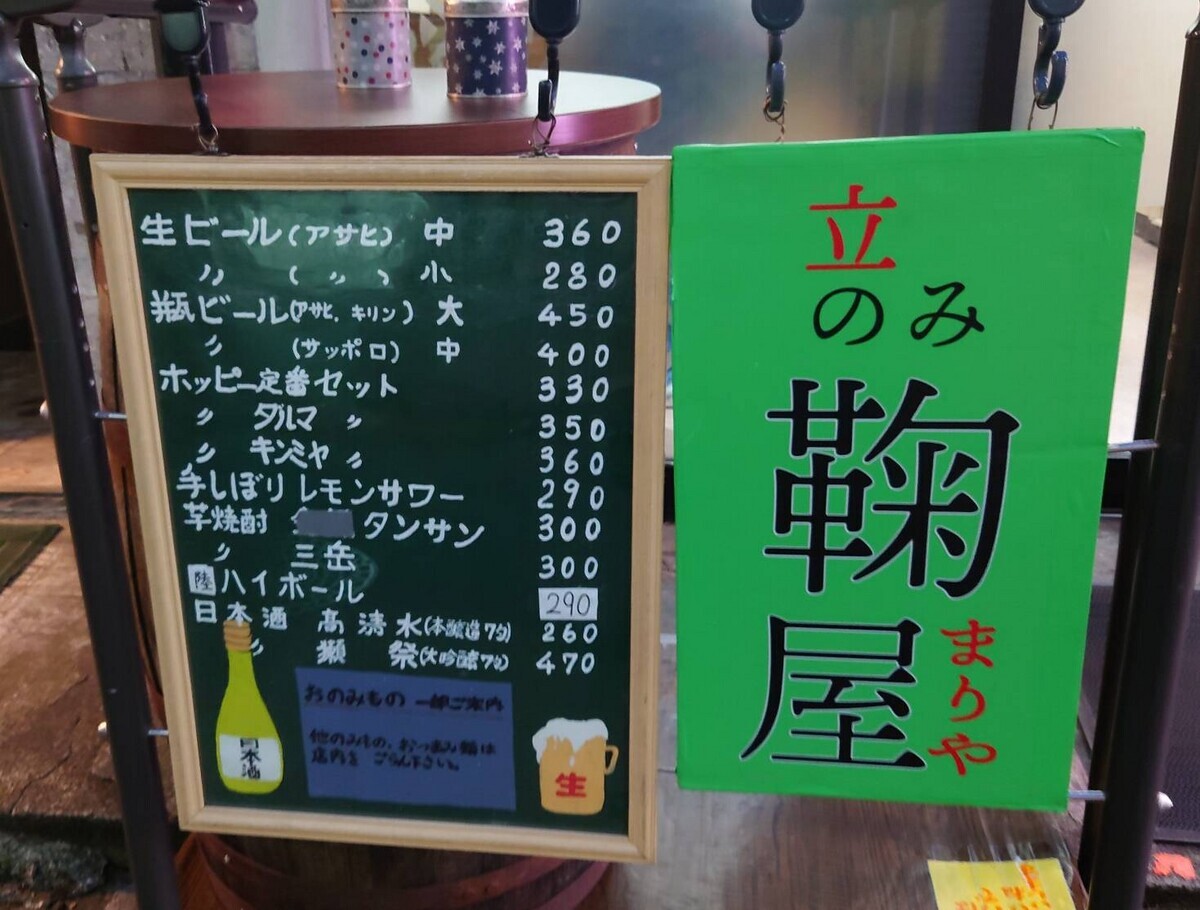 生ビール(アサヒ) 中 360
〃 (〃) 小 280
瓶ビール(アサヒ.キリン) 大 450
〃 (サッポロ) 中 400
ホッピー定番セット 330
〃 ダルマ 〃 350
〃 キンミヤ 〃 360
手しぼりレモンサワー 290
芋焼酎 タンサン 300
〃 三岳 300
陸ハイボール 290
日本酒 髙清水(本醸造7勺) 260
〃 獺祭(大吟醸7勺) 470
おのみもの 一部ご案内
他のみもの、おつまみ類は
店内を ごらん下さい。
日本酒
生
立
のみ
鞠屋
まりや